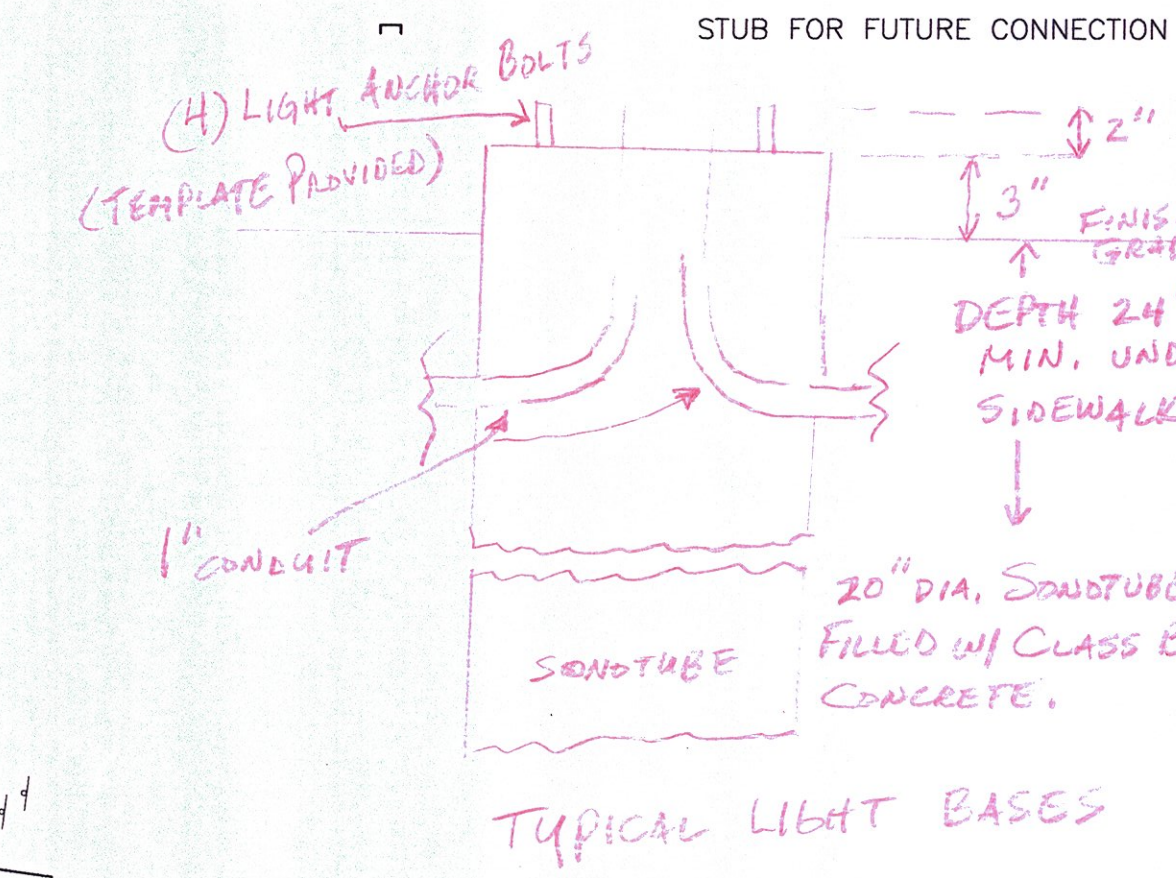 STUB FOR FUTURE CONNECTION
(4) LIGHT ANCHOR BOLTS
(TEMPLATE PROVIDED)
2"
3"
FINIS
GRA
DEPTH 24
MIN. UND
SIDEWALK
1" CONDUIT
20" DIA. SONOTUBE
FILLED W/ CLASS B
CONCRETE.
SONOTUBE
TYPICAL LIGHT BASES